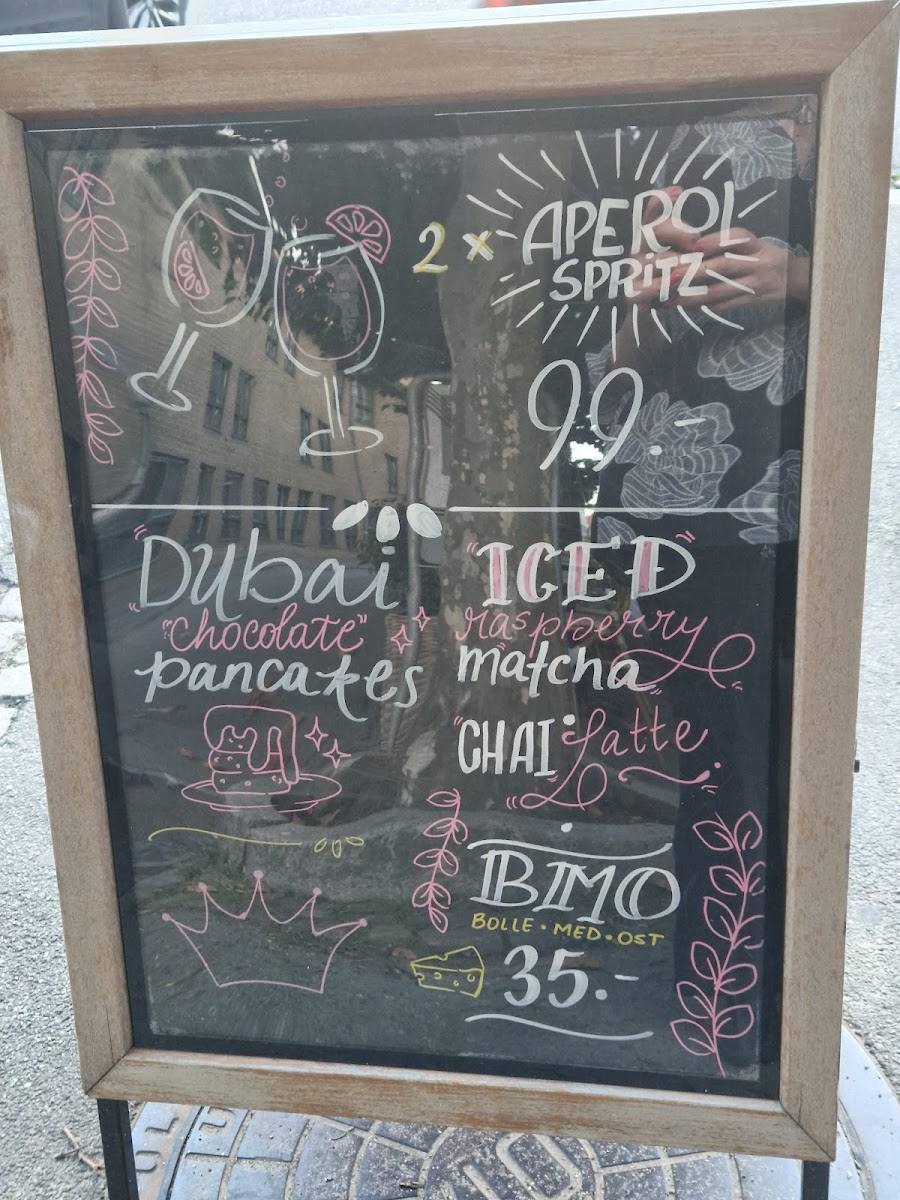 2 x APEROL
SPRITZ
99.-
Dubai
"chocolate"
pancakes
"ICED"
raspberry
matcha
"CHAI latte
BMO
BOLLE • MED • OST
35.-